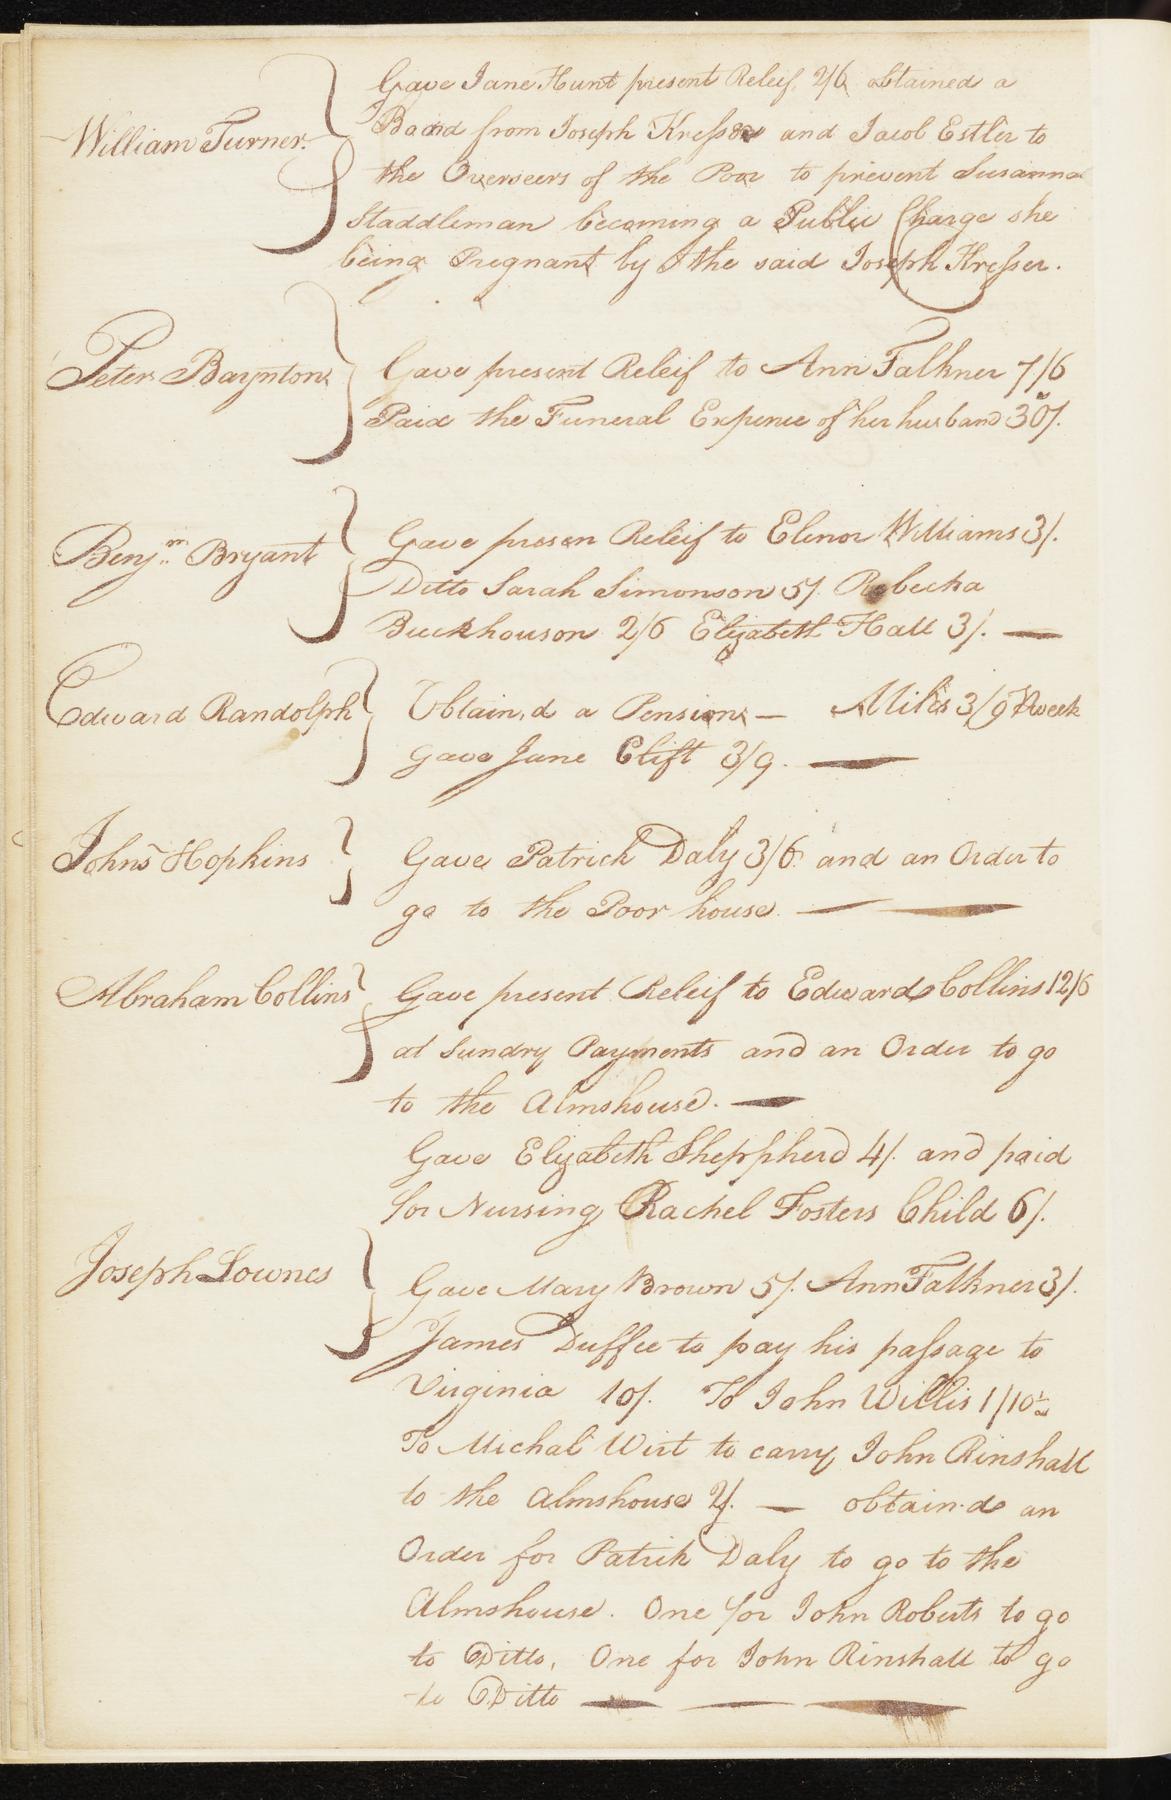 William Turner.
Gave Jane Hunt present Releif 2/6 obtained a
Bond from Joseph Kresser and Jacob Estler to
the Overseers of the Poor to prevent Susanna
Staddleman becoming a Public Charge she
being Pregnant by the said Joseph Kresser.
Peter Baynton
Gave present Releif to Ann Falkner 7/6
Paid the Funeral Expence of her husband 30/.
Benjn. Bryant
Gave presen Releif to Elenor Williams 3/.
Ditto Sarah Simonson 5/. Rebecka
Buckhouson 2/6 Elizabeth Hall 3/. —
Edward Randolph
Obtain,d a Pension — Miles 3/9 ⅌ week
Gave Jane Clift 3/9. —
Johns Hopkins
Gave Patrick Daly 3/6 and an Order to
go to the Poor house. — —
Abraham Collins
Gave present Releif to Edward Collins 12/6
at Sundry Payments and an Order to go
to the Almshouse. —
Gave Elizabeth Sheppherd 4/. and paid
for Nursing Rachel Fosters Child 6/.
Joseph Lownes
Gave Mary Brown 5/. Ann Falkner 3/.
James Duffee to pay his passage to
Virginia 10/. To John Willis 1/10½
To Michal Wirt to carry John Rinshall
to the Almshouse 2/. — obtain.d an
Order for Patrik Daly to go to the
Almshouse. One for John Roberts to go
to Ditto, One for John Rinshall to go
to Ditto — — —